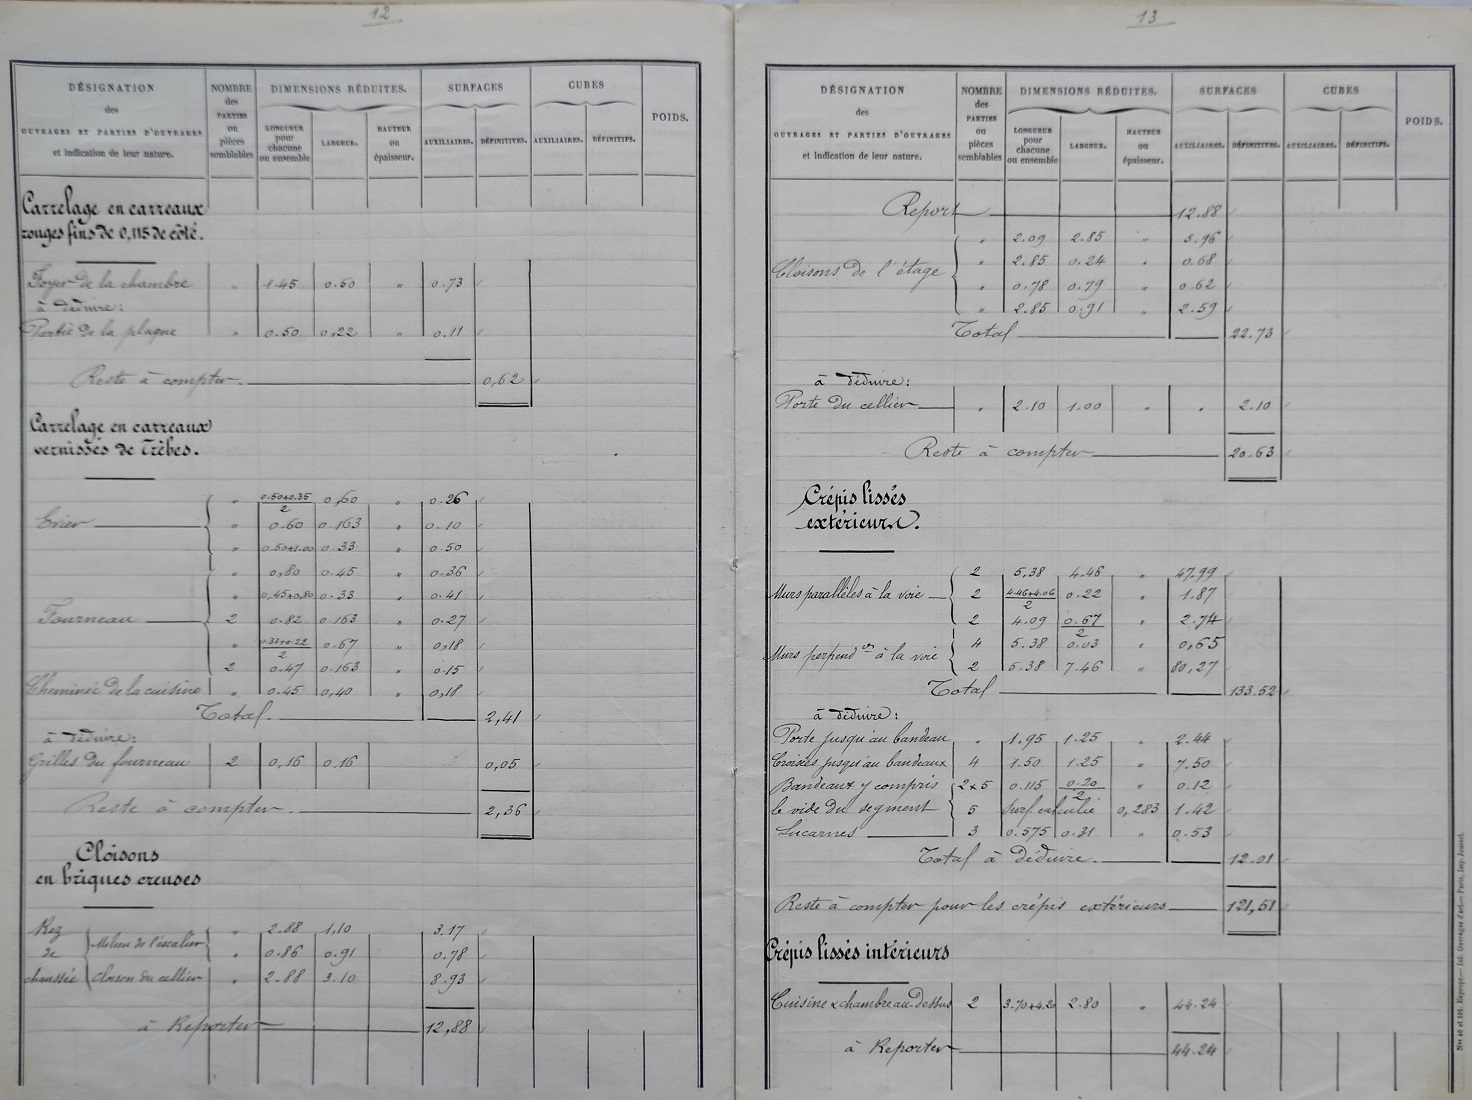 12
DÉSIGNATION
des
OUVRAGES ET PARTIES D'OUVRAGES
et indication de leur nature.
NOMBRE
des
PARTIES
ou
pièces
semblables
DIMENSIONS RÉDUITES.
LONGUEUR
pour
chacune
ou ensemble
LARGEUR.
HAUTEUR
ou
épaisseur.
SURFACES
AUXILIAIRES.
DÉFINITIVES.
CUBES
AUXILIAIRES.
DÉFINITIFS.
POIDS.
Carrelage en carreaux
rouges fins de 0,115 de côté.
Foyer de la chambre " 1.45 0.60 " 0.73
à déduire:
Partie de la plaque " 0.50 0,22 " 0.11
Reste à compter. 0,62
Carrelage en carreaux
vernissés de Trèbes.
" 0.50+0.35/2 0,60 " 0.26
Evier " 0.60 0.163 " 0.10
" 0.50+1.00 0.33 " 0.50
" 0,80 0.45 " 0.36
" 0,45+0,80 0.33 " 0.41
Fourneau 2 0.82 0.163 " 0.27
" 0.33+0.22/2 0.67 " 0,18
2 0.47 0.163 " 0.15
Cheminée de la cuisine " 0.45 0,40 " 0,18
Total. 2,41
à déduire:
Grilles du fourneau 2 0,16 0.16 0,05
Reste à compter. 2,36
Cloisons
en briques creuses
Rez de chaussée
" 2.88 1,10 3.17
Milieu de l'escalier " 0.86 0.91 0.78
Cloison du cellier " 2.88 3.10 8.93
à Reporter 12,88
13
DÉSIGNATION
des
OUVRAGES ET PARTIES D'OUVRAGES
et indication de leur nature.
NOMBRE
des
PARTIES
ou
pièces
semblables
DIMENSIONS RÉDUITES.
LONGUEUR
pour
chacune
ou ensemble
LARGEUR.
HAUTEUR
ou
épaisseur.
SURFACES
AUXILIAIRES.
DÉFINITIVES.
CUBES
AUXILIAIRES.
DÉFINITIFS.
POIDS.
Report 12.88
" 2.09 2.85 " 5.96
Cloisons de l'étage " 2.85 0.24 " 0.68
" 0.78 0.79 " 0.62
" 2.85 0.91 " 2.59
Total 22.73
à déduire:
Porte du cellier " 2.10 1.00 " " 2.10
Reste à compter 20.63
Crépis lissés
extérieurs.
2 5,38 4.46 " 47.99
Murs parallèles à la voie 2 4.46+4.06/2 0.22 " 1.87
2 4.09 0.67/2 " 2.74
4 5.38 0.03 " 0,65
Murs perpend.res à la voie 2 5.38 7.46 " 80,27
Total 133.52
à déduire:
Porte jusqu'au bandeau " 1.95 1.25 " 2.44
Croisées jusqu'au bandeaux 4 1.50 1.25 " 7.50
Bandeaux y compris 2x5 0.115 0.20/2 " 0.12
le vide du segment 5 Surf. calculée 0,283 1.42
Lucarnes 3 0.575 0.31 " 0.53
Total à déduire. 12.01
Reste à compter pour les crépis extérieurs 121,51
Crépis lissés intérieurs
Cuisine & chambre au-dessus 2 3.70+4.20 2.80 " 44.24
à Reporter 44.24